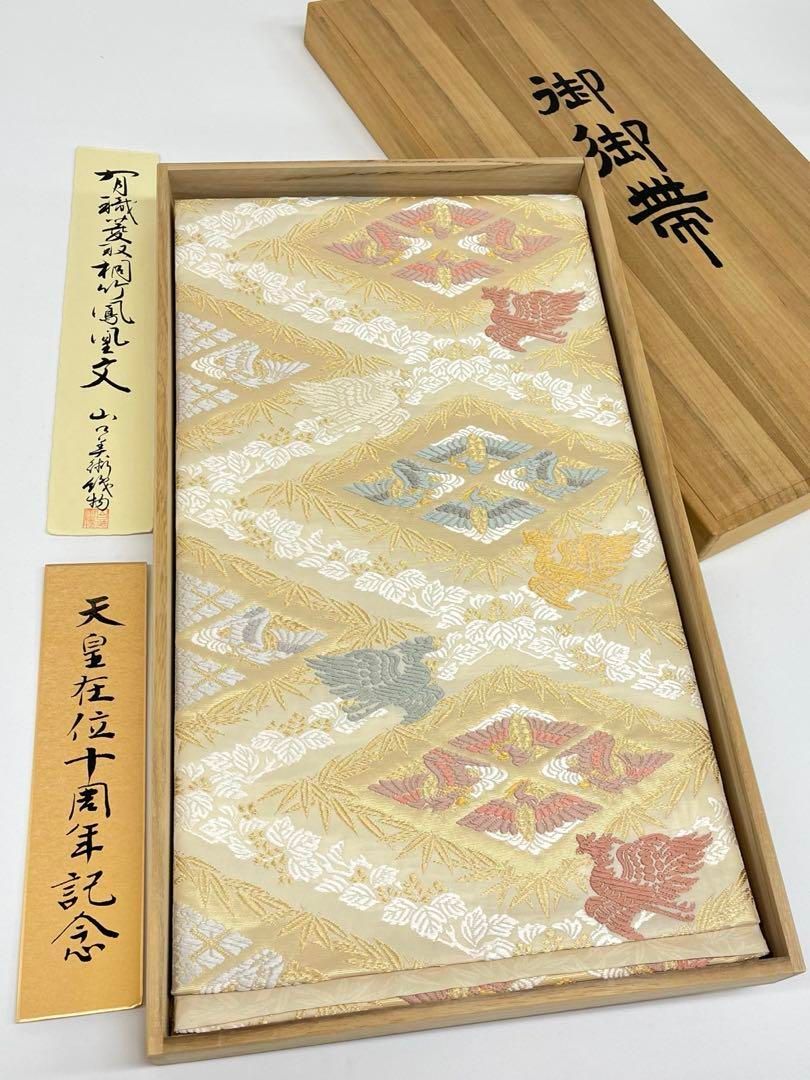 御御帯
有職菱取桐竹鳳凰文
山口美術織物
天皇在位十周年記念